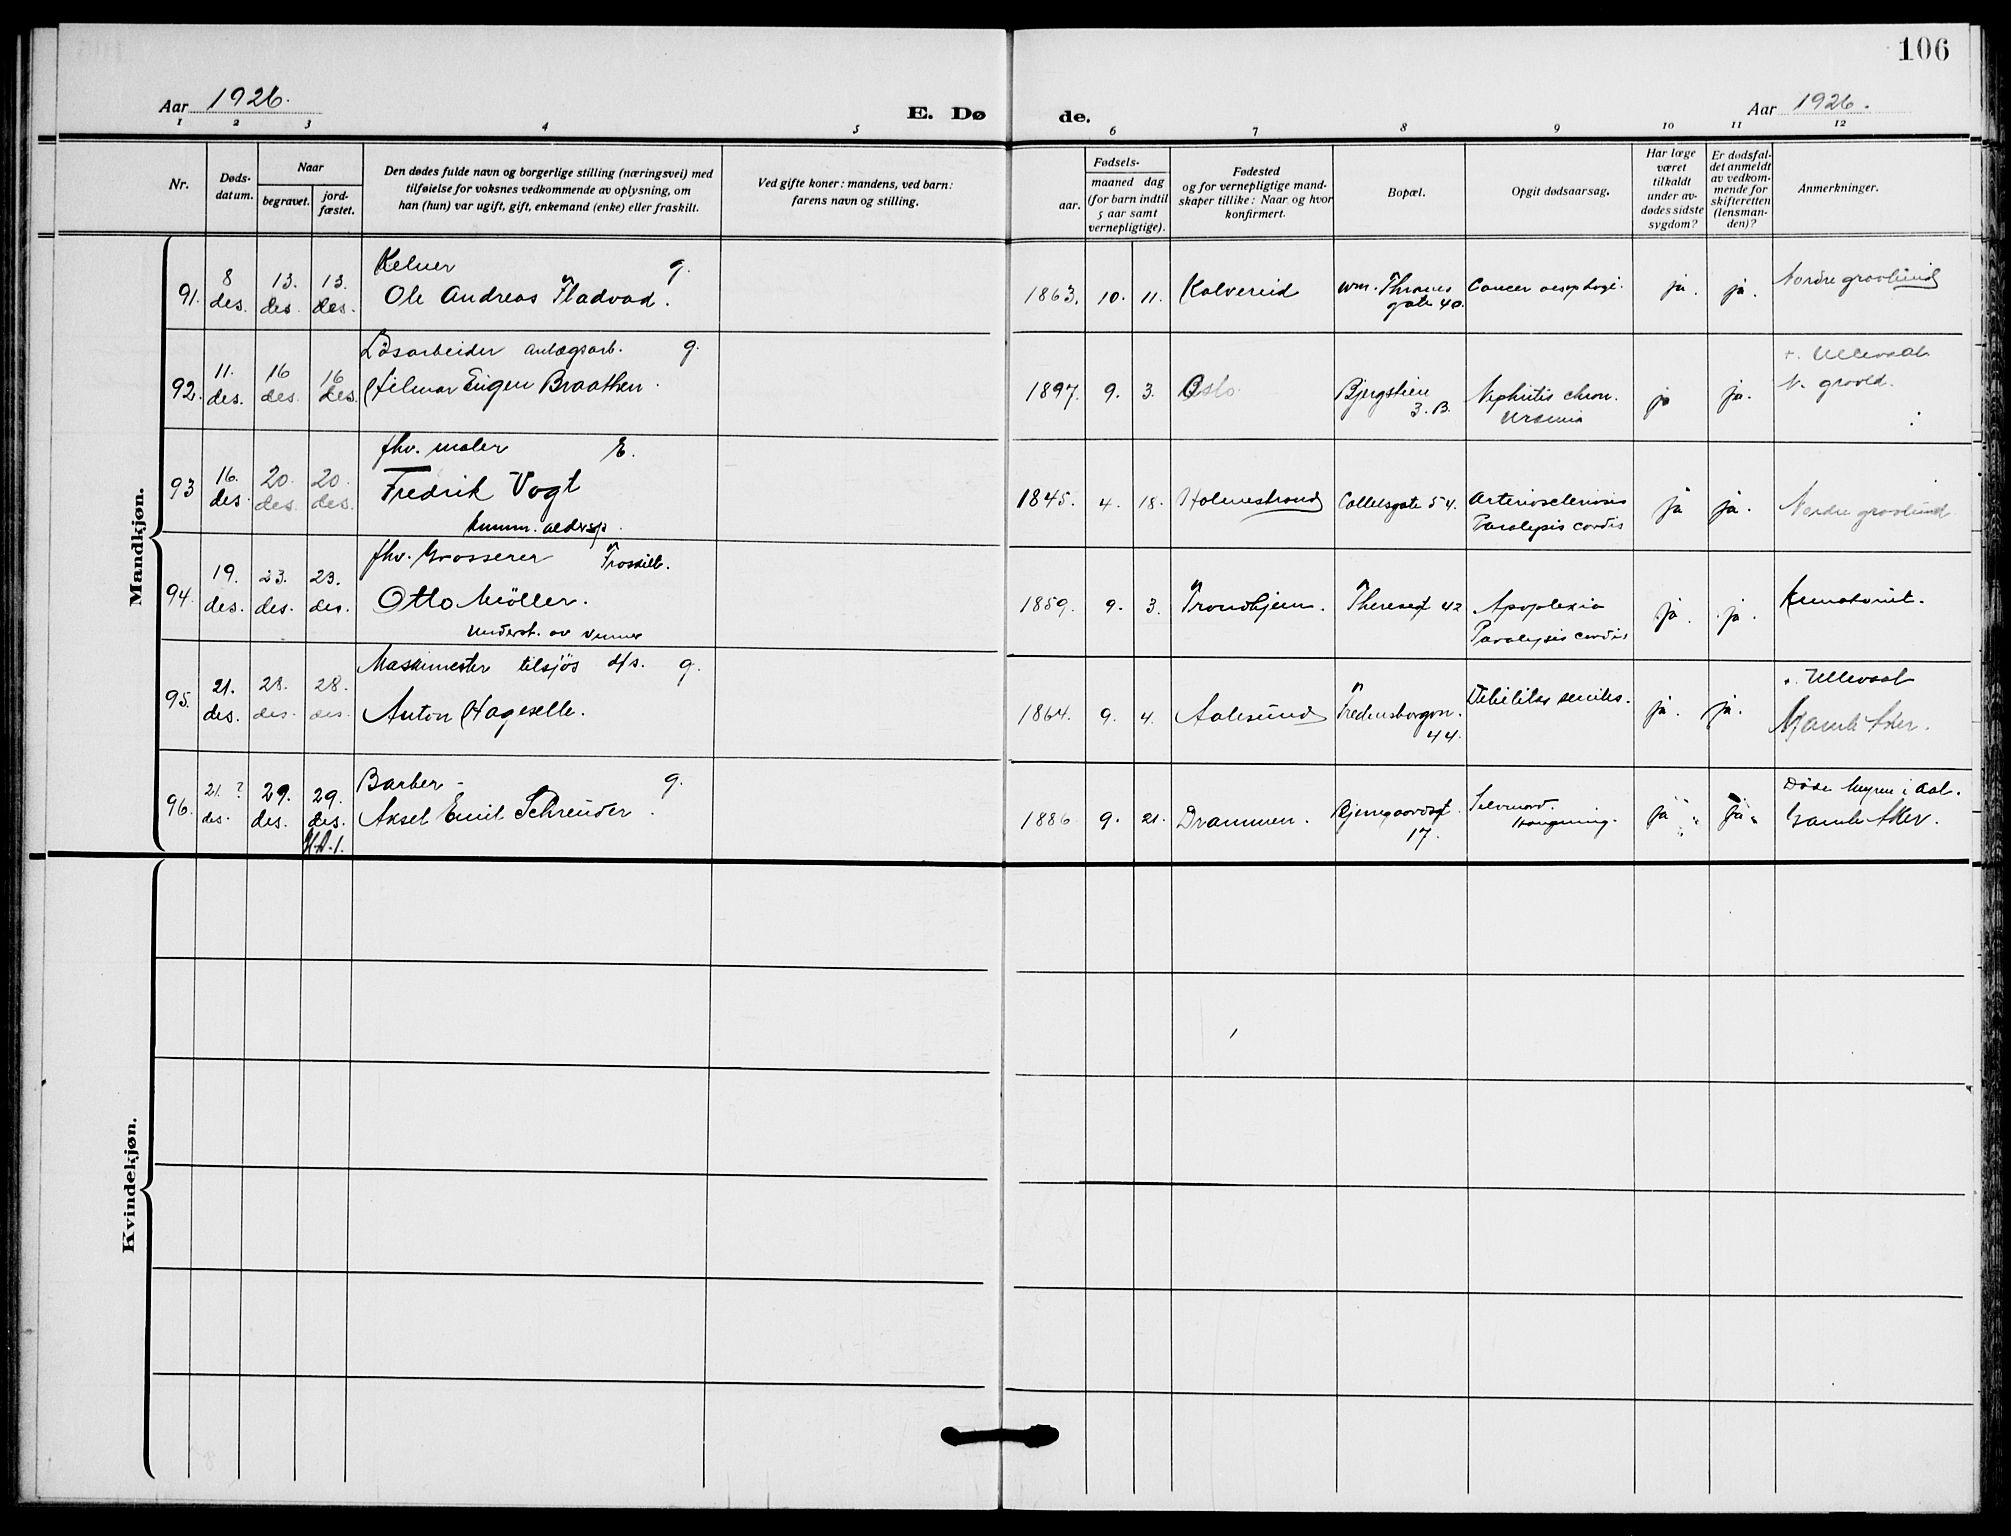 106
Aar 1926.
E. Dø
de.
Aar 1926.
1 2 3 4 5 6 7 8 9 10 11 12
Nr.
Døds-
datum.
Naar
begravet.
jord-
fæstet.
Den dødes fulde navn og borgerlige stilling (næringsvei) med
tilføielse for voksnes vedkommende av oplysning, om
han (hun) var ugift, gift, enkemand (enke) eller fraskilt.
Ved gifte koner: mandens, ved barn:
farens navn og stilling.
Fødsels-
aar.
maaned dag
(for barn indtil
5 aar samt
vernepligtige).
Fødested
og for vernepligtige mand-
skaper tillike: Naar og hvor
konfirmert.
Bopæl.
Opgit dødsaarsag.
Har læge
været
tilkaldt
under av-
dødes sidste
sygdom?
Er dødsfal-
det anmeldt
av vedkom-
mende for
skifteretten
(lensman-
den)?
Anmerkninger.
Mandkjøn.
91. 8 des. 13. des. 13. des.
Kelner g.
Ole Andreas Fladvad.
1863. 10. 11. Kolvereid
Wm. Thranes
gate 40.
Cancer oesophagi. ja. ja.
Nordre gravlund
92. 11. des. 16 des. 16 des.
Løsarbeider anlægsarb. g.
Hilmar Eugen Braathen.
1897. 9. 3. Oslo
Bjergstien
3. B.
Nephritis chron.
Uræmia
ja ja.
+. Ullevaal
N. gravld.
93 16. des. 20. des. 20. des.
fhv. maler E.
Fredrik Vogt
komm. aldersp.
1845. 4. 18. Holmestrand
Colletsgate 54.
Arteriosclerosis
Paralysis cordis
ja ja.
Nordre gravlund
94. 19. des. 23. des. 23. des.
fhv. Grosserer Fraskilt.
Otto Møller.
Underst. av venner
1859. 9. 3. Trondhjem.
Theresegt 42
Apoplexia
Paralysis cordis
ja. ja.
95. 21. des. 28. des. 28. des.
Maskinmester tilsjøs d/s. g.
Anton Hageselle.
1864. 9. 4. Aalesund
Fredensborgvn.
44.
Debilitas senilis. ja. ja.
+. Ullevaal
Gamle Aker.
96. 21. ? des. 29. des. 29. des.
Barber - g.
Aksel Emil Schreuder.
1886 9. 21. Drammen.
Bjerregaardsgt
17.
Selvmord.
Hængning.
ja ja
Gamle Aker.
Kvindekjøn.